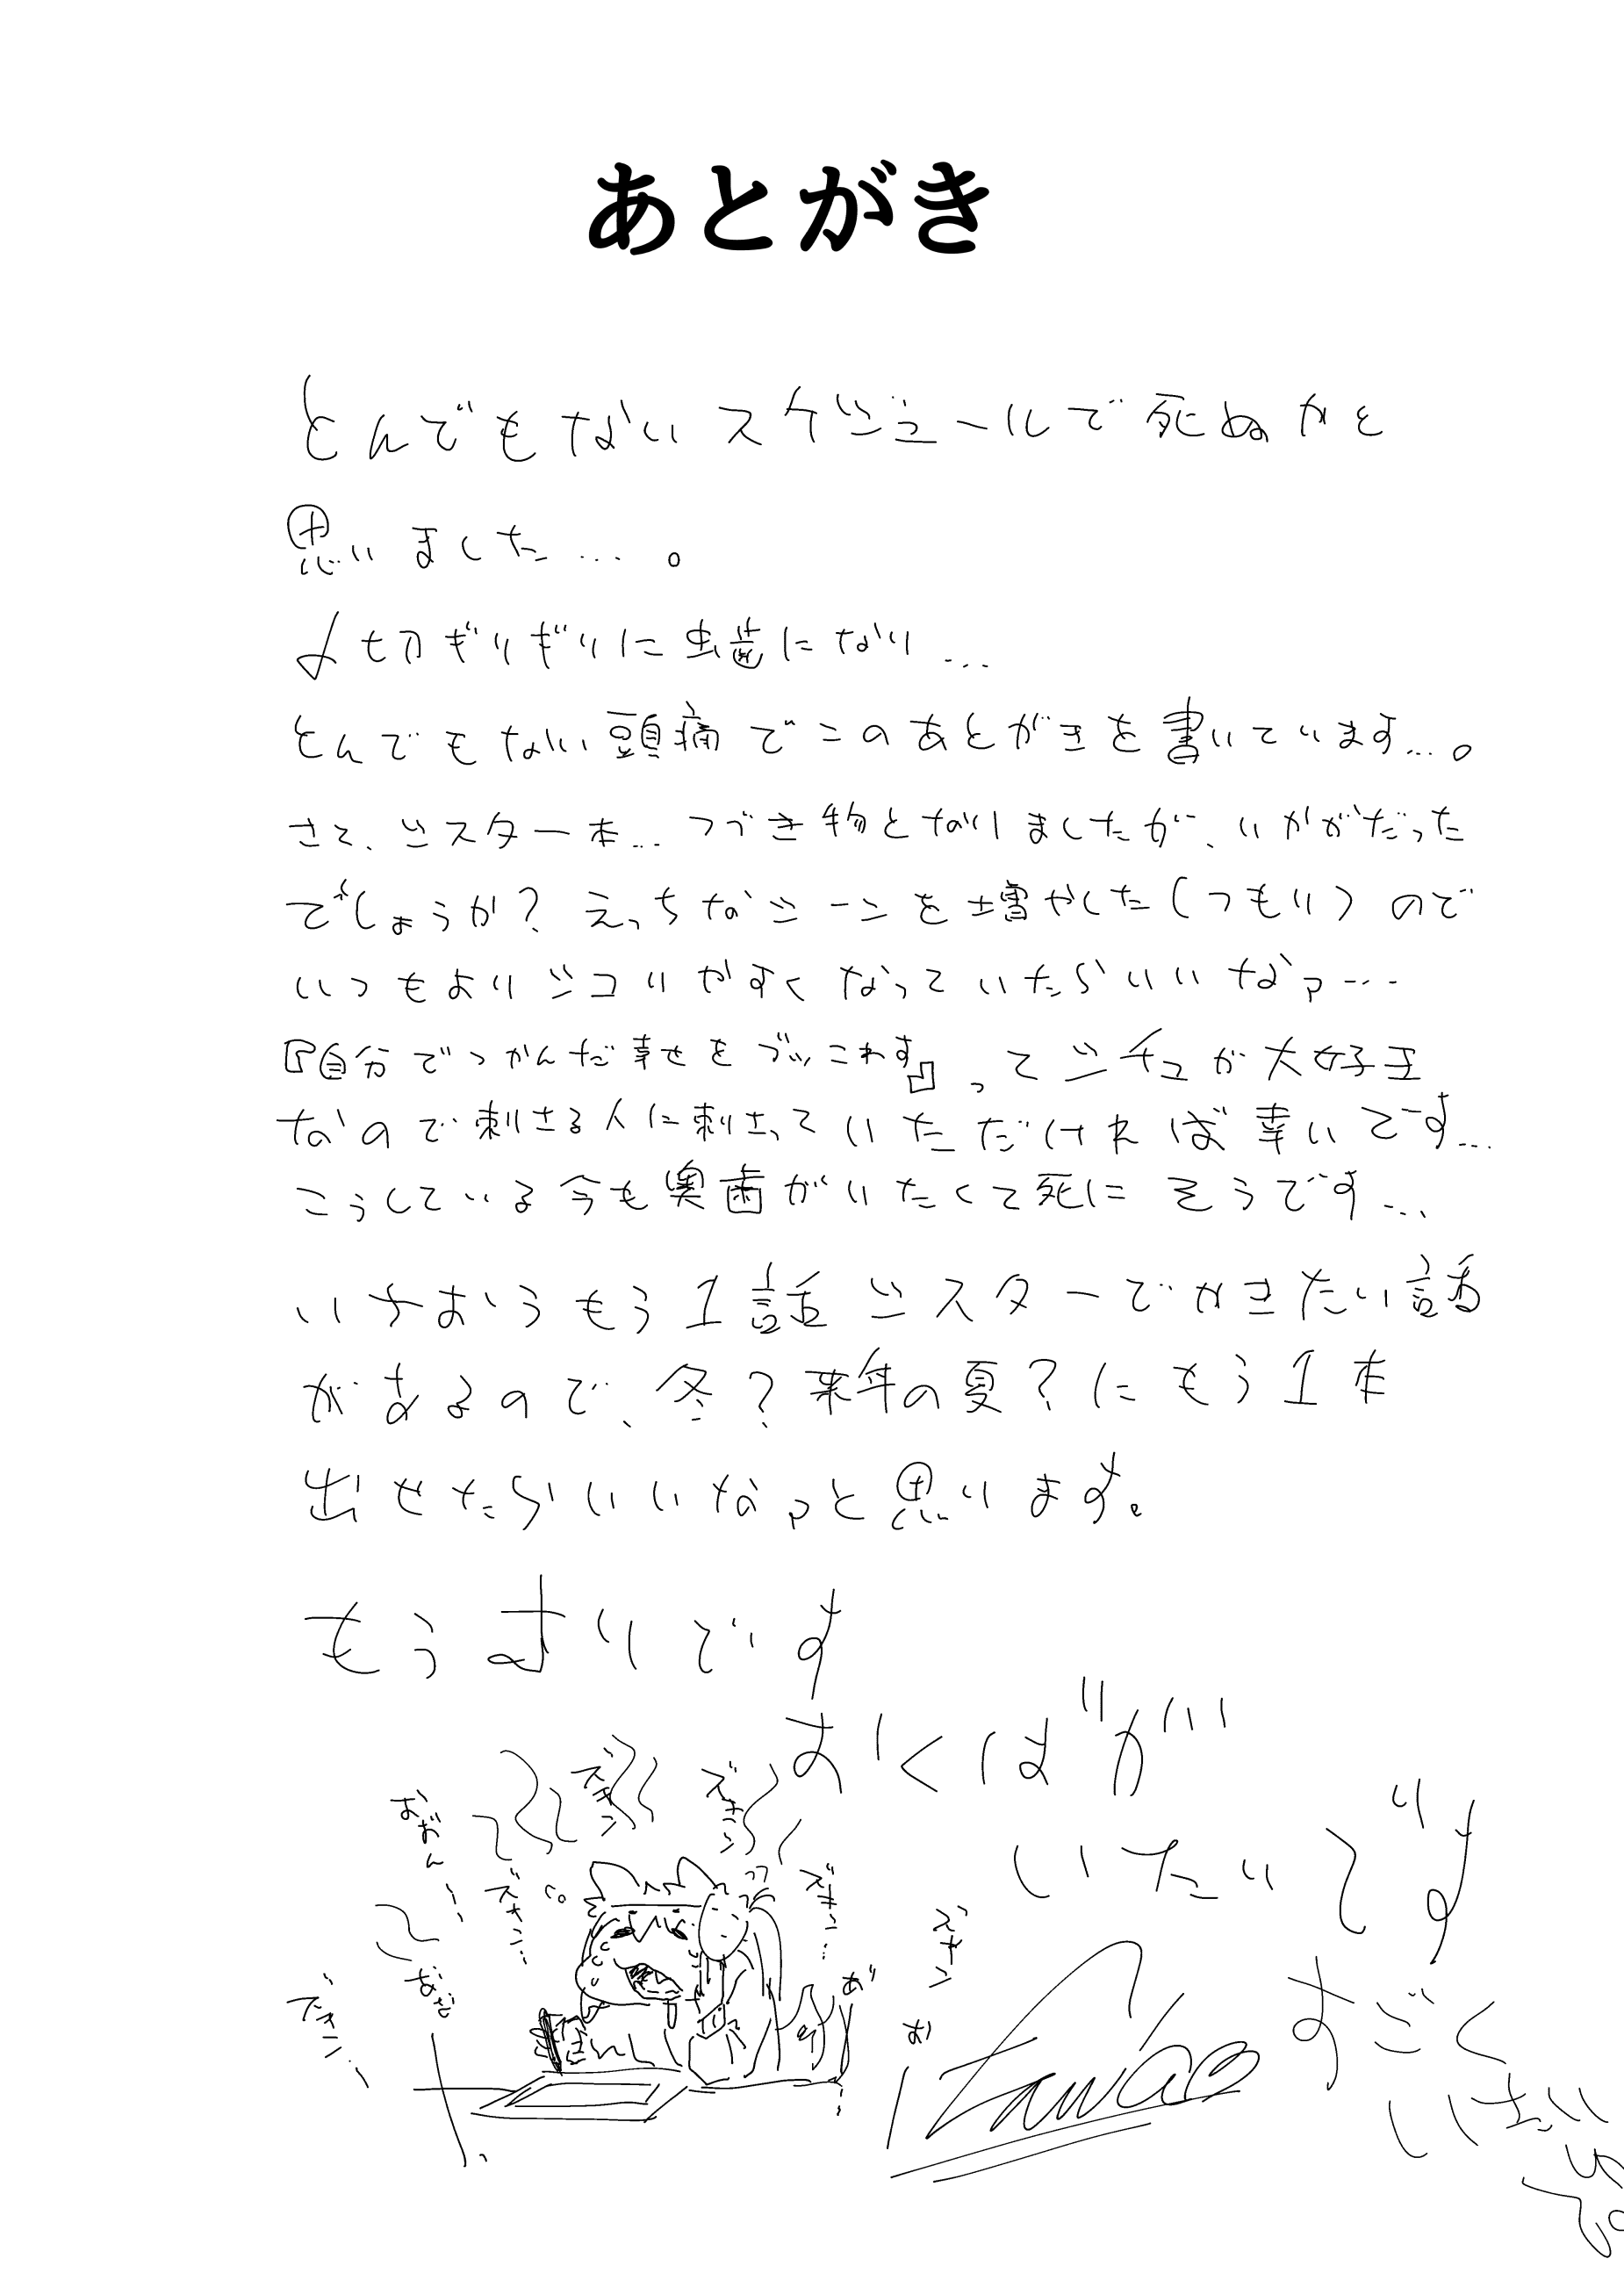 あとがき
とんでもないスケジュールで死ぬかと
思いました…。
〆切ぎりぎりに虫歯になり…
とんでもない頭痛でこのあとがきを書いています…。
さて、シスター本…つづき物となりましたが、いかがだった
でしょうか?えっちなシーンを増やした(つもり)ので
いつもよりシコりやすくなっていたらいいなァ…
『自分でつかんだ幸せをブッこわす』ってシチュが大好王
なので刺さる人に刺さっていただければ幸いです…
こうしている今も奥歯がいたくて死にそうです…
いちおうもう1話シスターでかきたい話
があるので、冬?来年の夏?にもう1本
出せたらいいなァと思います。
もうまりです
おくばが
いたいです
すごく
いたい
ズキン
ズキン
おおん
ズキン…
ズキン…
ズキン
ズキン…
お